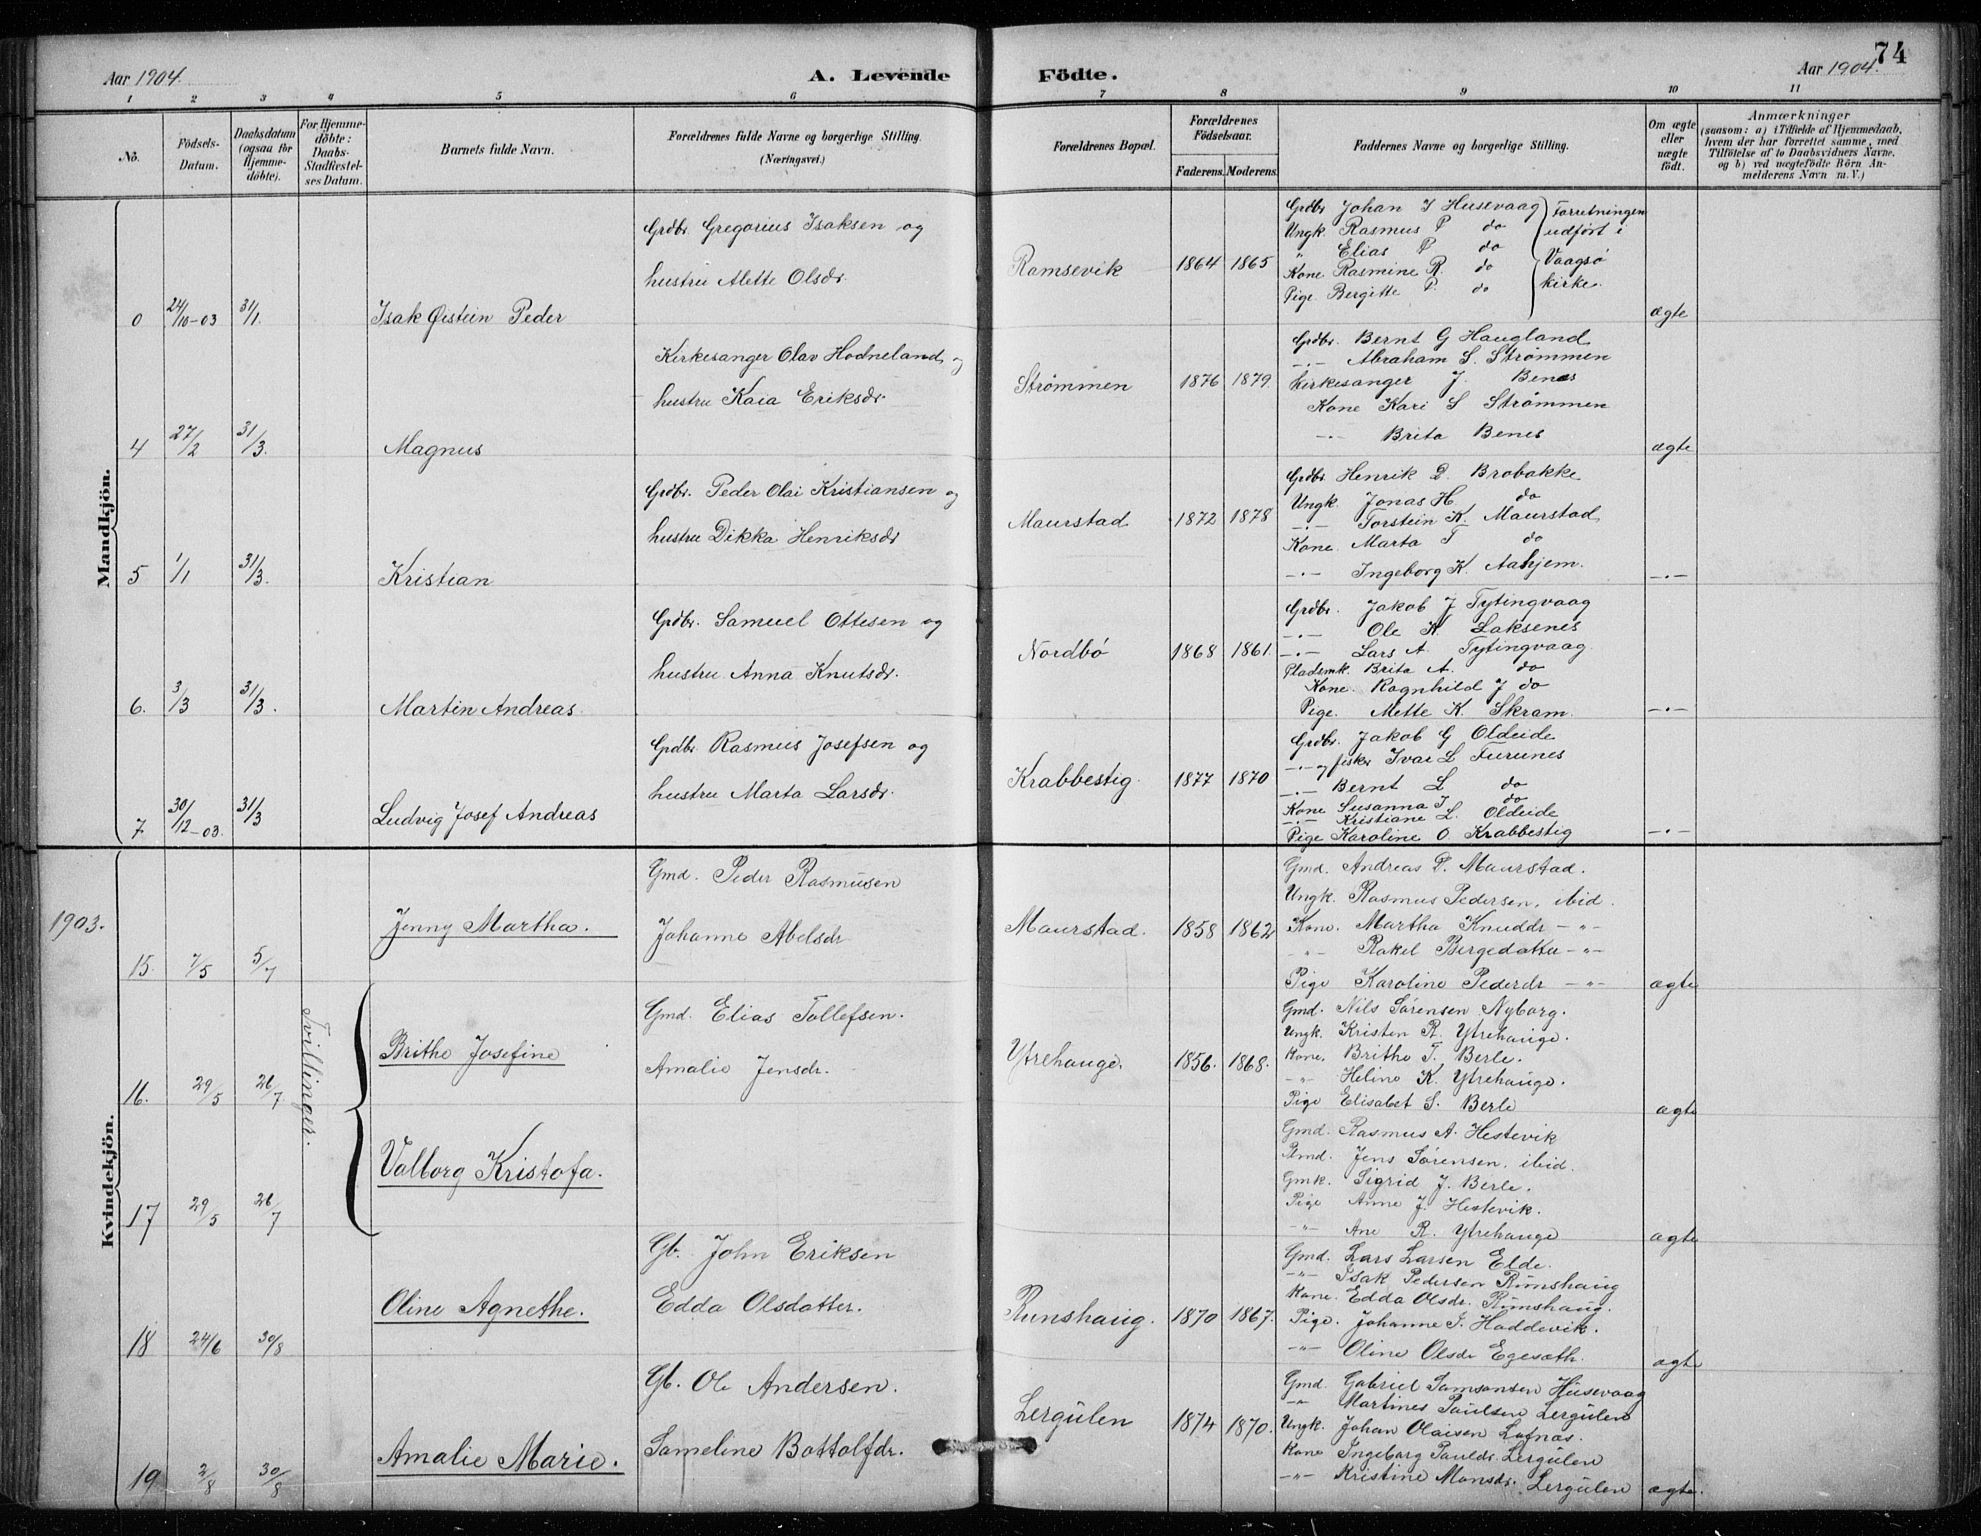 74
Aar 1904.
A. Levende Födte.
Aar 1904.
1 2 3 4 5 6 7 8 9 10 11
No.
Födsels-Datum.
Daabsdatum (ogsaa for Hjemme-döbte).
For Hjemme-döbte: Daabs-Stadfæstel-ses Datum.
Barnets fulde Navn.
Forældrenes fulde Navne og borgerlige Stilling. (Næringsvei.)
Forældrenes Bopæl.
Forældrenes Födselsaar.
Faderens. Moderens.
Faddernes Navne og borgerlige Stilling.
Om ægte eller uægte födt.
Anmærkninger
(saasom: a) i Tilfælde af Hjemmedaab, hvem der har forrettet samme, med Tilföielse af to Daabsvidners Navne, og b) ved uægtefödte Börn An-melderens Navn m. V.)
Mandkjön.
0 24/10-03 31/1. Isak Øistein Peder
Grdbr. Gregorius Isaksen og
hustru Alette Olsdr.
Ramsevik 1864 1865
Grdbr. Johan I Husevaag
Ungk. Rasmus P do
" Elias P do
Kone Rasmine R. do
Pige Bergitte P. do
Forretningen
udført i
Vaagsø
kirke.
ægte
4 27/2 31/3. Magnus
Kirkesanger Olav Hodneland og
hustru Kaia Eriksdr.
Strømmen 1876 1879.
Grdbr. Bernt G Haugland
-·- Abraham S. Strømmen
Kirkesanger J. Benes
Kone Kari S Strømmen
-·- Brita Benes
ægte
5 1/1 31/3. Kristian
Grdbr. Peder Olai Kristiansen og
hustru Dikka Henriksdr
Maurstad 1872 1878
Grdbr. Henrik D. Brobakke
Ungk. Jonas H. do
-·- Torstein K. Maurstad
Kone. Marta T do
-·- Ingeborg K. Aahjem.
-·-
6. 3/3 31/3. Martin Andreas
Grdbr. Samuel Ottesen og
hustru Anna Knutsdr.
Nordbø 1868 1861.
Grdbr. Jakob J Tytingvaag
-·- Ole K. Laksenes
-·- Lars A. Tytingvaag
Pladsmk. Brita A. do
Kone. Ragnhild J do
Pige. Mette K. Skram.
-·-
7 30/12-03. 31/3 Ludvig Josef Andreas
Grdbr. Rasmus Josefsen og
hustru Marta Larsdr.
Krabbestig. 1877 1870
Grdbr. Jakob G Oldeide
-·- og fisker Ivar L Furunes
-·- Bernt L do
Kone Susanna I do
-·- Kristiane L. Oldeide
Pige Karoline O. Krabbestig
-·-
1903.
Kvindekjön.
15. 7/5 5/7 Jenny Martha.
Gmd. Peder Rasmusen
Johanne Abelsdr
Maurstad. 1858 1862
Gmd. Andreas P. Maurstad.
Ungk. Rasmus Pedersen, ibid.
Kone. Martha Knudsdr -"-
-"- Rakel Bergedatter -"-
Pige Karoline Pedersdr -"-
ægte
Tvillinger.
16. 29/5 26/7. Brithe Josefine
Gmd. Elias Tollefsen.
Amalie Jensdr.
Ytrehauge. 1856. 1868.
Gmd. Nils Sørensen Nyborg.
Ungk. Kristen R. Ytrehauge.
Kone. Brithe T. Berle.
-"- Heline K. Ytrehauge.
Pige Elisabet S. Berle
ægte
17 29/5 26/7 Valborg Kristofa.
Gmd. Rasmus A. Hestevik
Pmd. Jens Sørensen, ibid.
Gmk. Sigrid J. Berle.
Pige Anne J. Hestevik.
-"- Ane R. Ytrehauge
ægte
18 24/6 30/8 Oline Agnethe.
Gb. John Eriksen
Edda Olsdatter.
Runshaug. 1870 1867.
Gmd. Lars Larsen Elde.
-"- Isak Pedersen Runshaug
Kone. Edda Olsdr. Runshaug.
Pige. Johanne I. Hoddevik.
-"- Oline Olsdr Egesæth.
ægte
19 2/8 30/8 Amalie Marie.
Gb. Ole Andersen.
Sameline Bottolfdr.
Lergulen 1874 1870.
Gmd. Gabriel Samsonsen Husevaag
-"- Martines Paulsen Lergulen
Ungk. Johan Olaisen Lofnæs.
Kone Ingeborg Pauldr. Lergulen
-"- Kristine Monsdr. Lergulen
ægte.